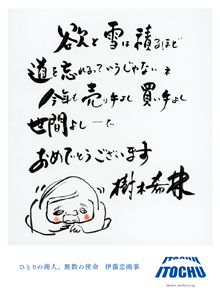 欲と雪は積るほど
道を忘れるっていうじゃないネ
今年も売り手よし買い手よし
世間よし―で
おめでとうございます
樹木希林
ひとりの商人、無数の使命 伊藤忠商事
ITOCHU
ITOCHU